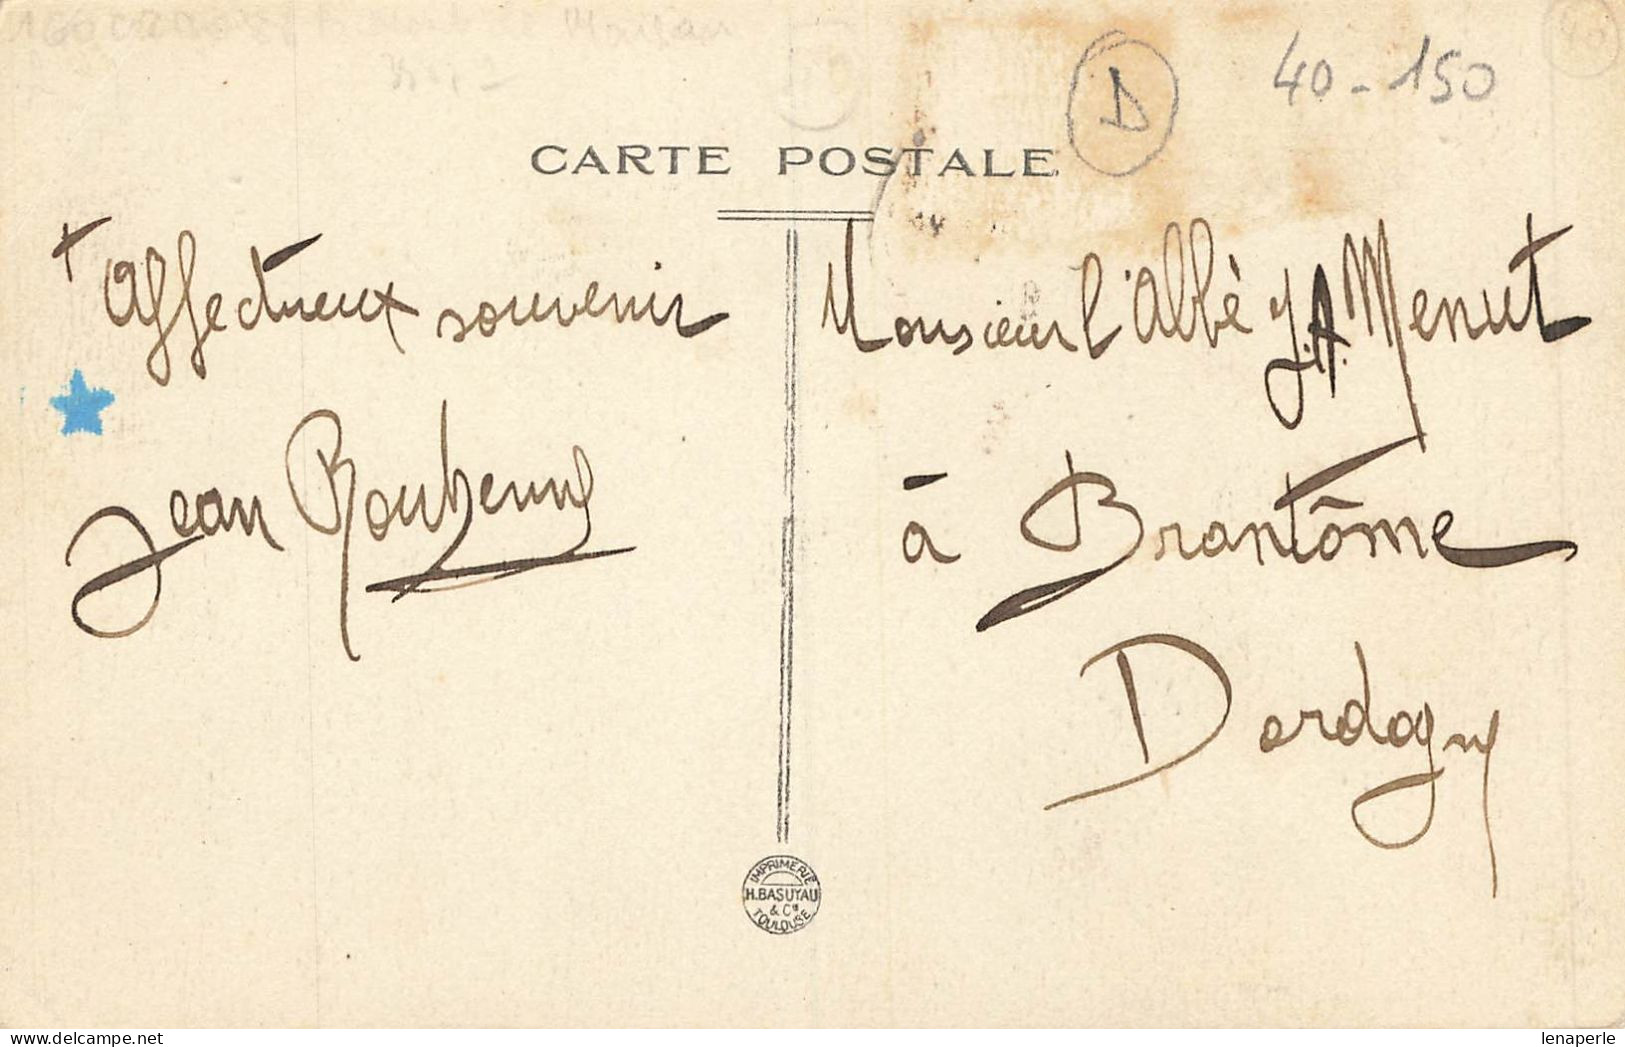 40-150
D
CARTE POSTALE
+
Affectueux souvenir
Jean
Monsieur l'Abbè J.A. Menut
à Brantôme
Dordogne
IMPRIMERIE
H.BASUYAU
& Cie
TOULOUSE
lenaperle